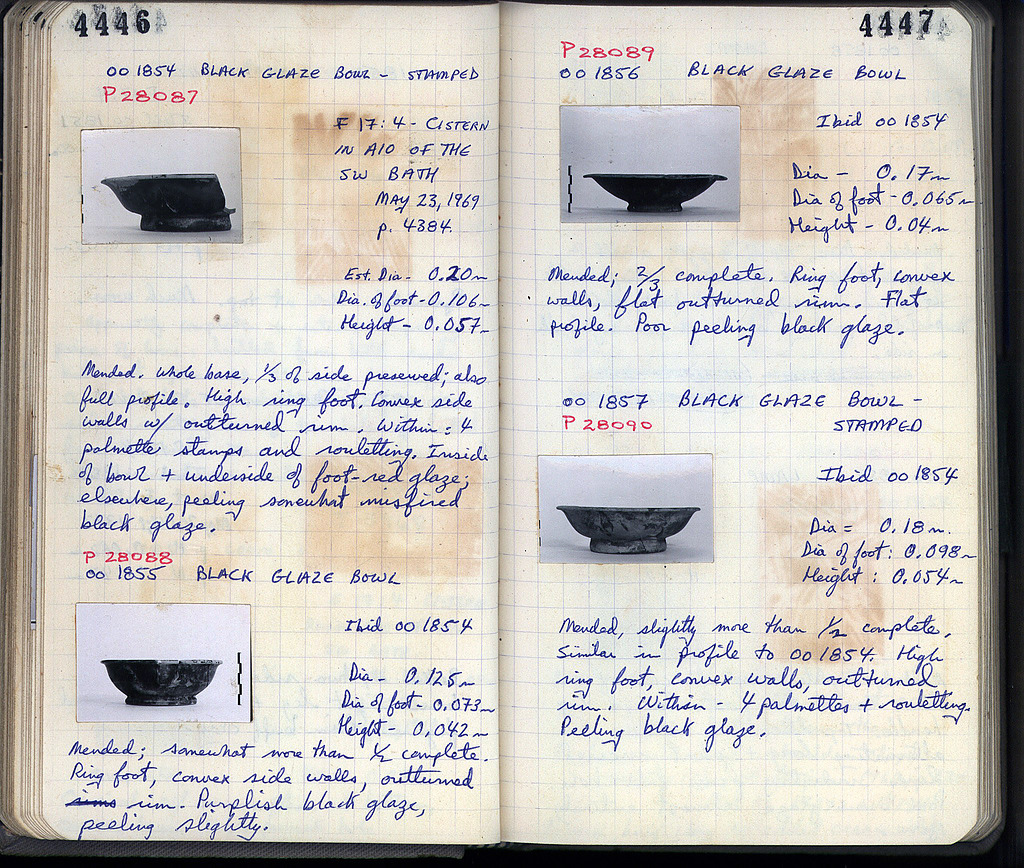 4446
oo 1854 BLACK GLAZE BOWL - STAMPED
P 28087
F 17:4 - CISTERN
IN A10 OF THE
SW BATH
MAY 23, 1969
p. 4384.
Est. Dia - 0.20m
Dia. of foot - 0.106m
Height - 0.057m
Mended. Whole base, 1/3 of side preserved; also
full profile. High ring foot. Convex side
walls w/ outturned rim. Within: 4
palmette stamps and rouletting. Inside
of bowl + underside of foot - red glaze;
elsewhere, peeling somewhat misfired
black glaze.
P 28088
oo 1855 BLACK GLAZE BOWL
Ibid oo 1854
Dia - 0.125m
Dia of foot - 0.073m
Height - 0.042m
Mended; somewhat more than 1/2 complete.
Ring foot, convex side walls, outturned
rim. Purplish black glaze,
peeling slightly.
4447
P 28089
oo 1856 BLACK GLAZE BOWL
Ibid oo 1854
Dia - 0.17m
Dia of foot - 0.065m
Height - 0.04m
Mended; 2/3 complete. Ring foot, convex
walls, flat outturned rim. Flat
profile. Poor peeling black glaze.
oo 1857 BLACK GLAZE BOWL -
P 28090 STAMPED
Ibid oo 1854
Dia = 0.18m.
Dia of foot: 0.098m
Height: 0.054m
Mended, slightly more than 1/2 complete.
Similar in profile to oo 1854. High
ring foot, convex walls, outturned
rim. Within - 4 palmettes + rouletting.
Peeling black glaze.